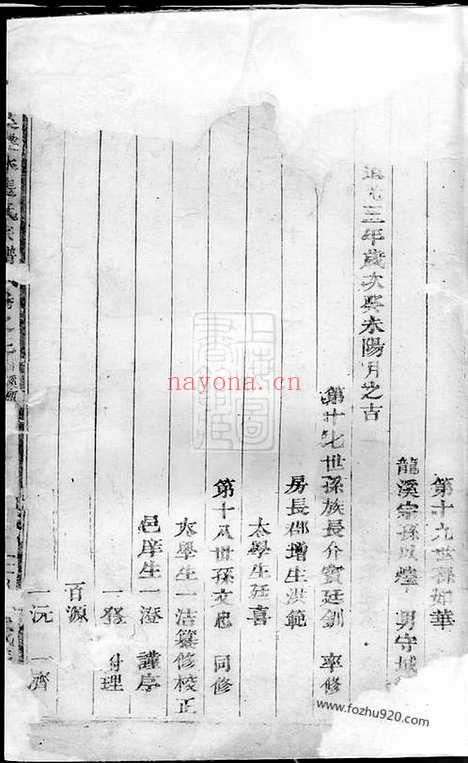 第十九世孫如華
龍溪宗孫 男守城
三年歲次癸未陽月之吉
第十七世孫族長介賓廷釧 率修
房長郡增生洪範
太學生廷喜
第十八世孫文 同修
太學生一洁纂修校正
邑庠生一澄 謹序
一 理
百源
一沅 一濟
氏宗譜
上海圖書館藏
nayona.cn
www.fozhu920.com